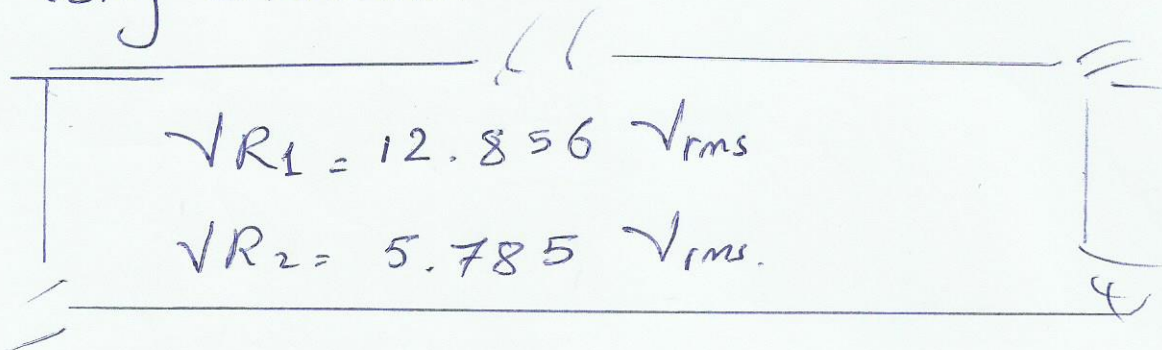 VR1 = 12.856 Vrms
VR2 = 5.785 Vrms.
4